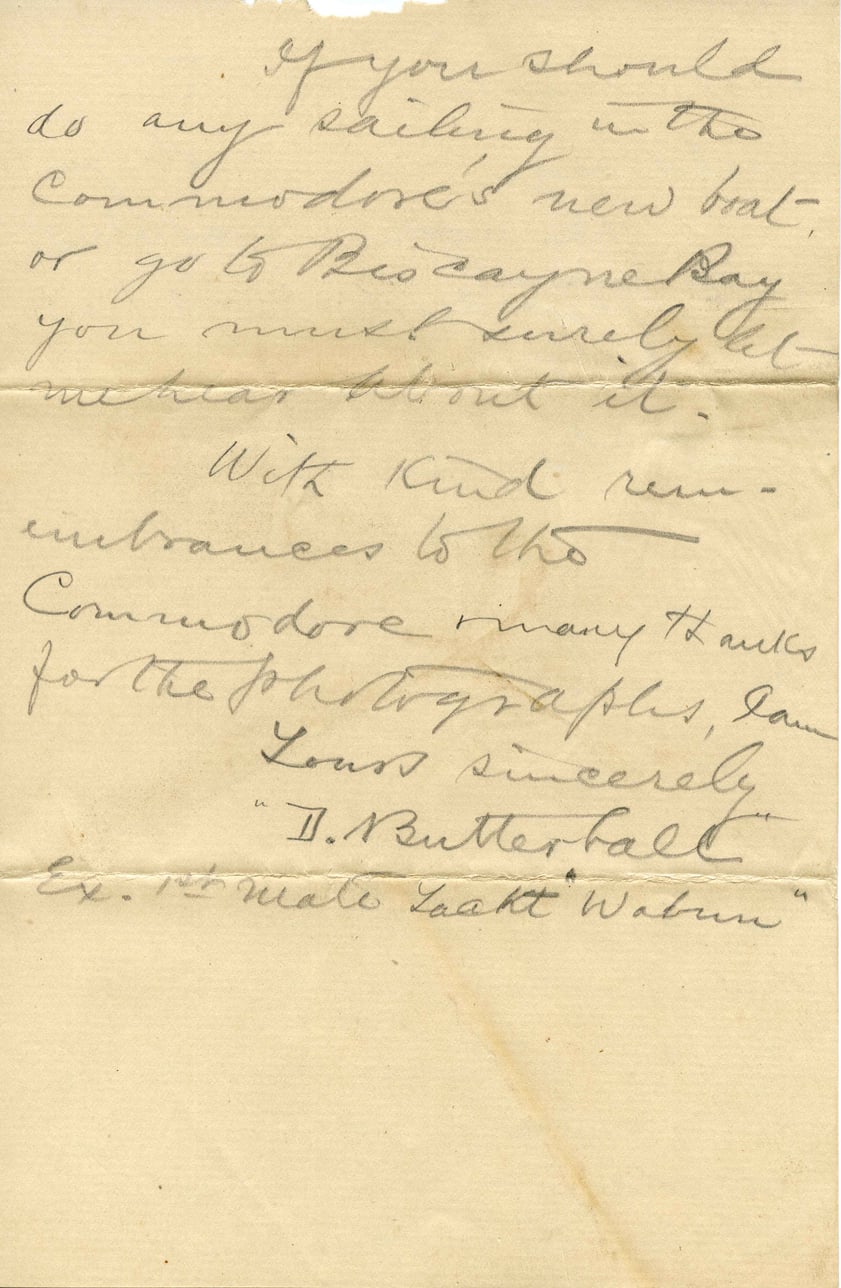 If you should
do any sailing in the
Commodore's new boat,
or go to Biscayne Bay
you must surely let
me hear about it.
With kind rem-
embrances to the
Commodore & many thanks
for the photographs, I am
Yours sincerely
"D. Butterball"
Ex. 1st Mate Yacht "Wabun"